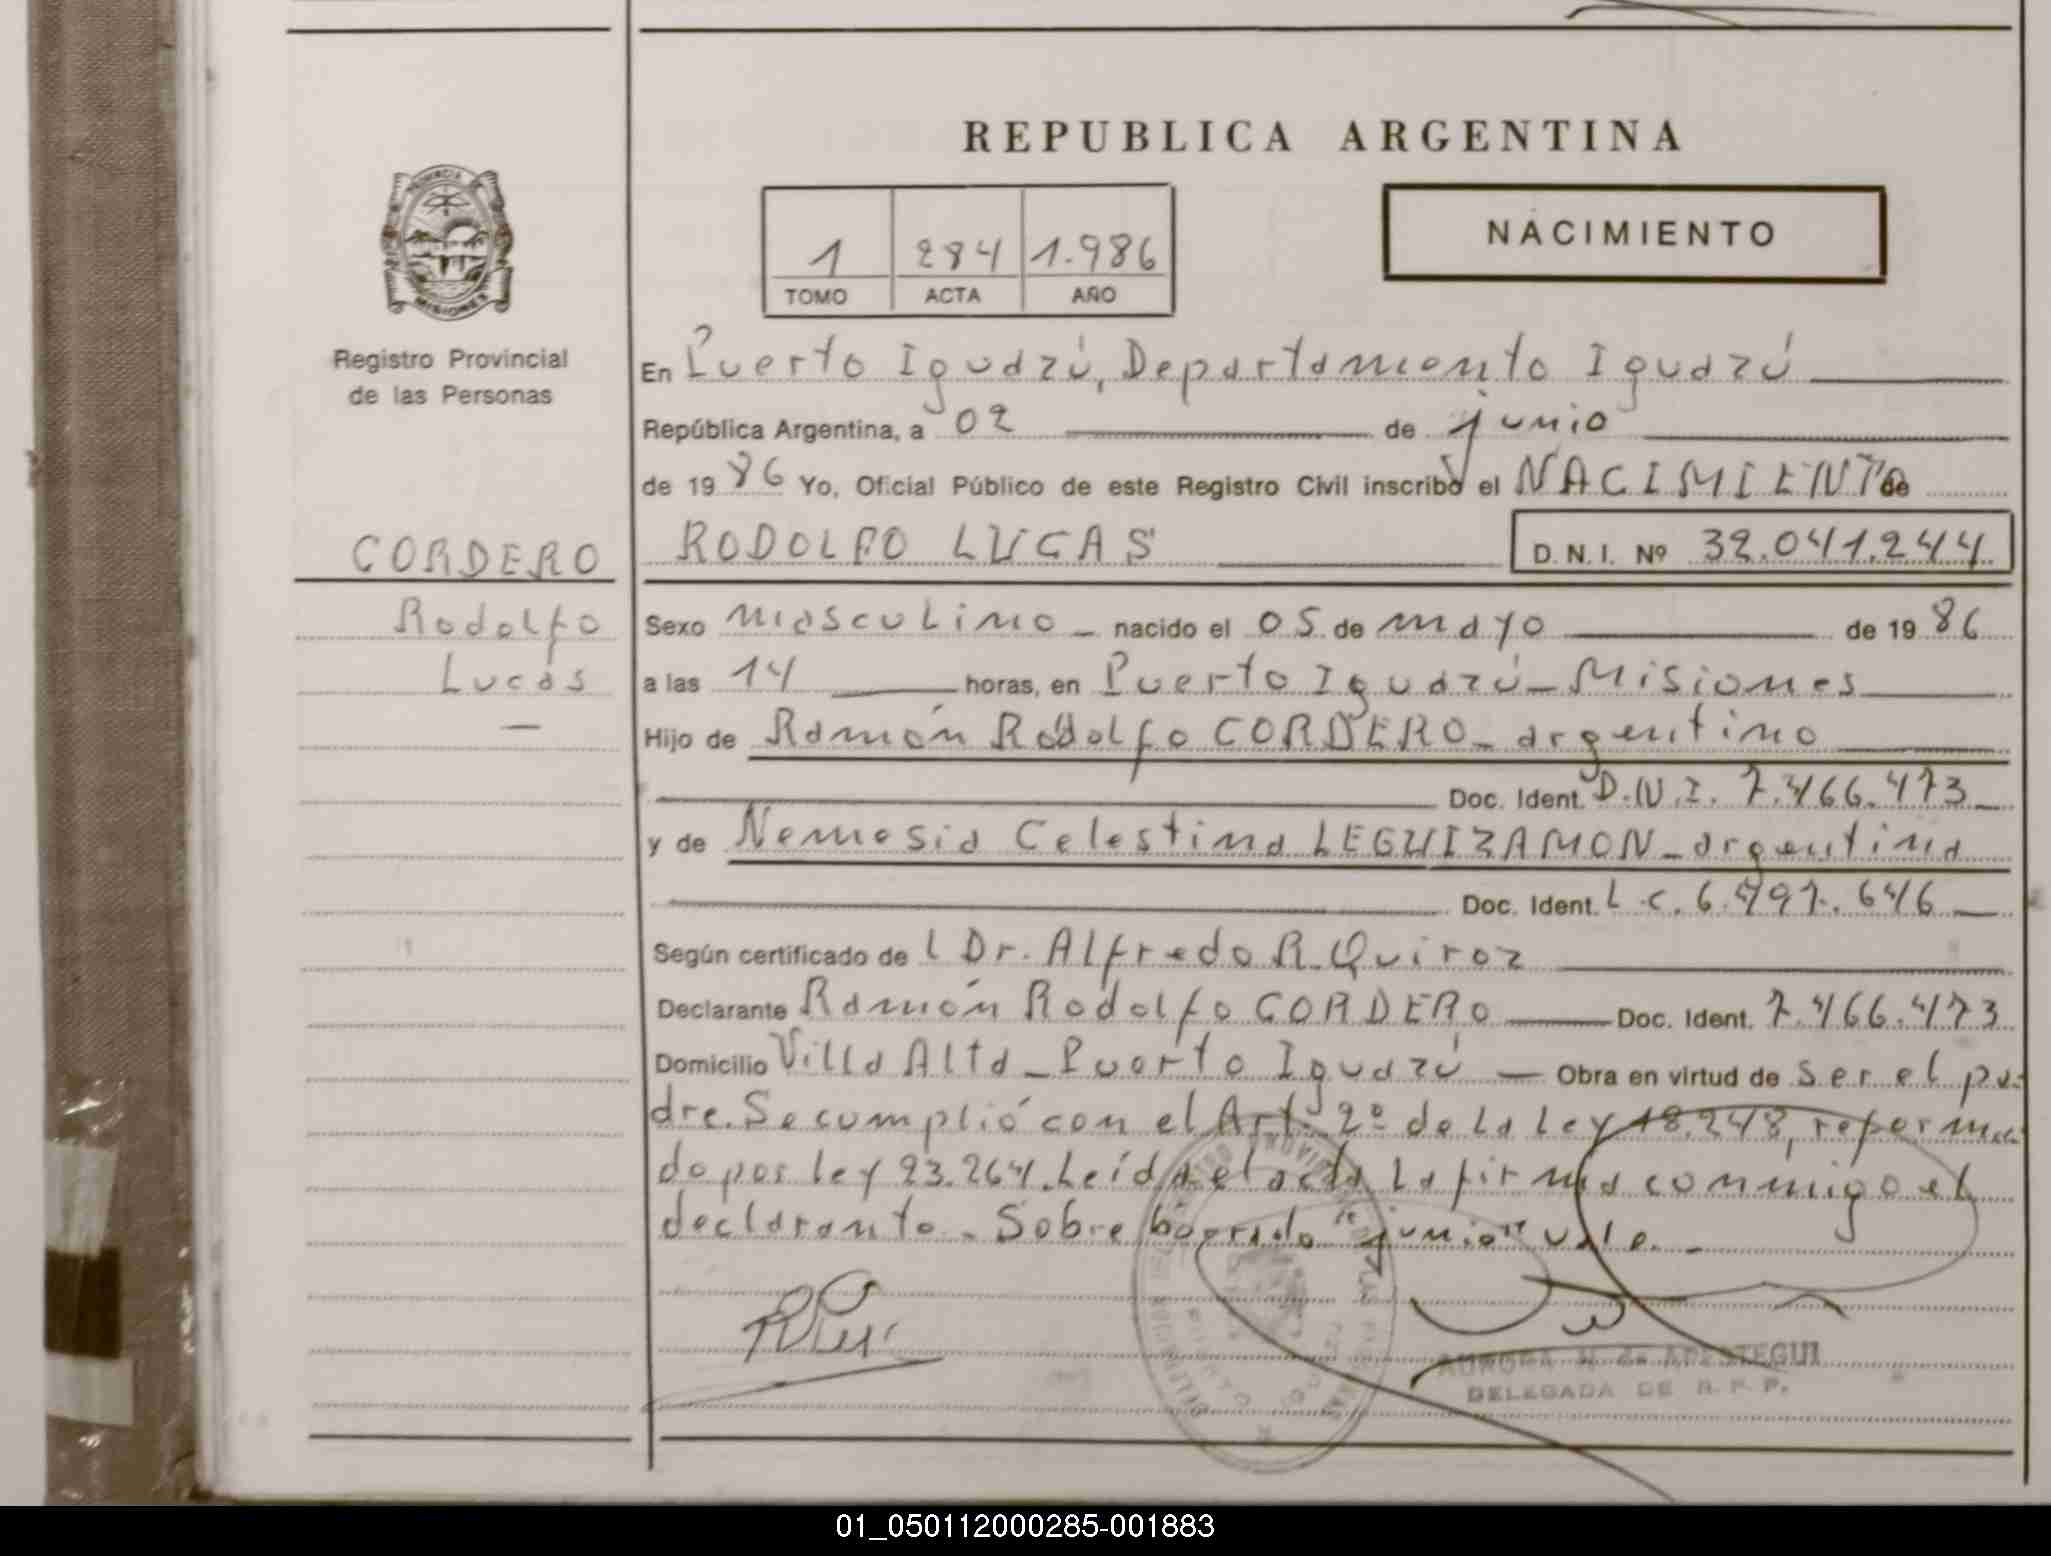 REPUBLICA ARGENTINA
PROVINCIA DE
MISIONES
Registro Provincial
de las Personas
1 284 1.986
TOMO ACTA AÑO
NACIMIENTO
En Puerto Iguazú, Departamento Iguazú
República Argentina, a 02 de junio
de 1986 Yo, Oficial Público de este Registro Civil inscribo el NACIMIENTO de
CORDERO
RODOLFO LUCAS
D. N. I. Nº 32.041.244
Rodolfo
Lucas
Sexo masculino nacido el 05 de mayo de 1986
a las 14 horas, en Puerto Iguazú - Misiones
Hijo de Ramón Rodolfo CORDERO - argentino
Doc. Ident. D.N.I. 7.466.473
y de Nemesia Celestina LEGUIZAMON - argentina
Doc. Ident. L.C. 6.491.646
Según certificado de l Dr. Alfredo R. Quiroz
Declarante Ramón Rodolfo CORDERO Doc. Ident. 7.466.473
Domicilio Villa Alta - Puerto Iguazú Obra en virtud de ser el pa-
dre. Se cumplió con el Art. 2º de la Ley 18.248, reforma
do por ley 23.264. Leída el acta la firma conmigo el
declarante. Sobre borrado "junio" vale. -
AURORA N. de APESTEGUI
DELEGADA DE R. P. P.
01_050112000285-001883